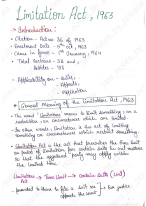 Limitation Act, 1963
Introduction:
- Citation - Act no 36 of 1963
- Enactment Date - 5th Oct, 1963
- Came in force - 1st January, 1964
- Total Sections - 32 and,
Articles - 137
- Applicability on - suits,
Appeals,
Application
General Meaning of the Limitation Act, 1963
- The word 'Limitation' means to limit something, or a
restriction, or circumstances which are limited.
- In other words, Limitation is a act of limiting
something or circumstances which restrict something.
- Limitation Act is the act that prescribes the time limit
or period of limitation, for certain suits to and matters
to that the aggrieved party may apply within
the limited time.
Limitation Act → Time limit → Certain Suits (list)
- provided to them to file a suit in
appeals the court for justice